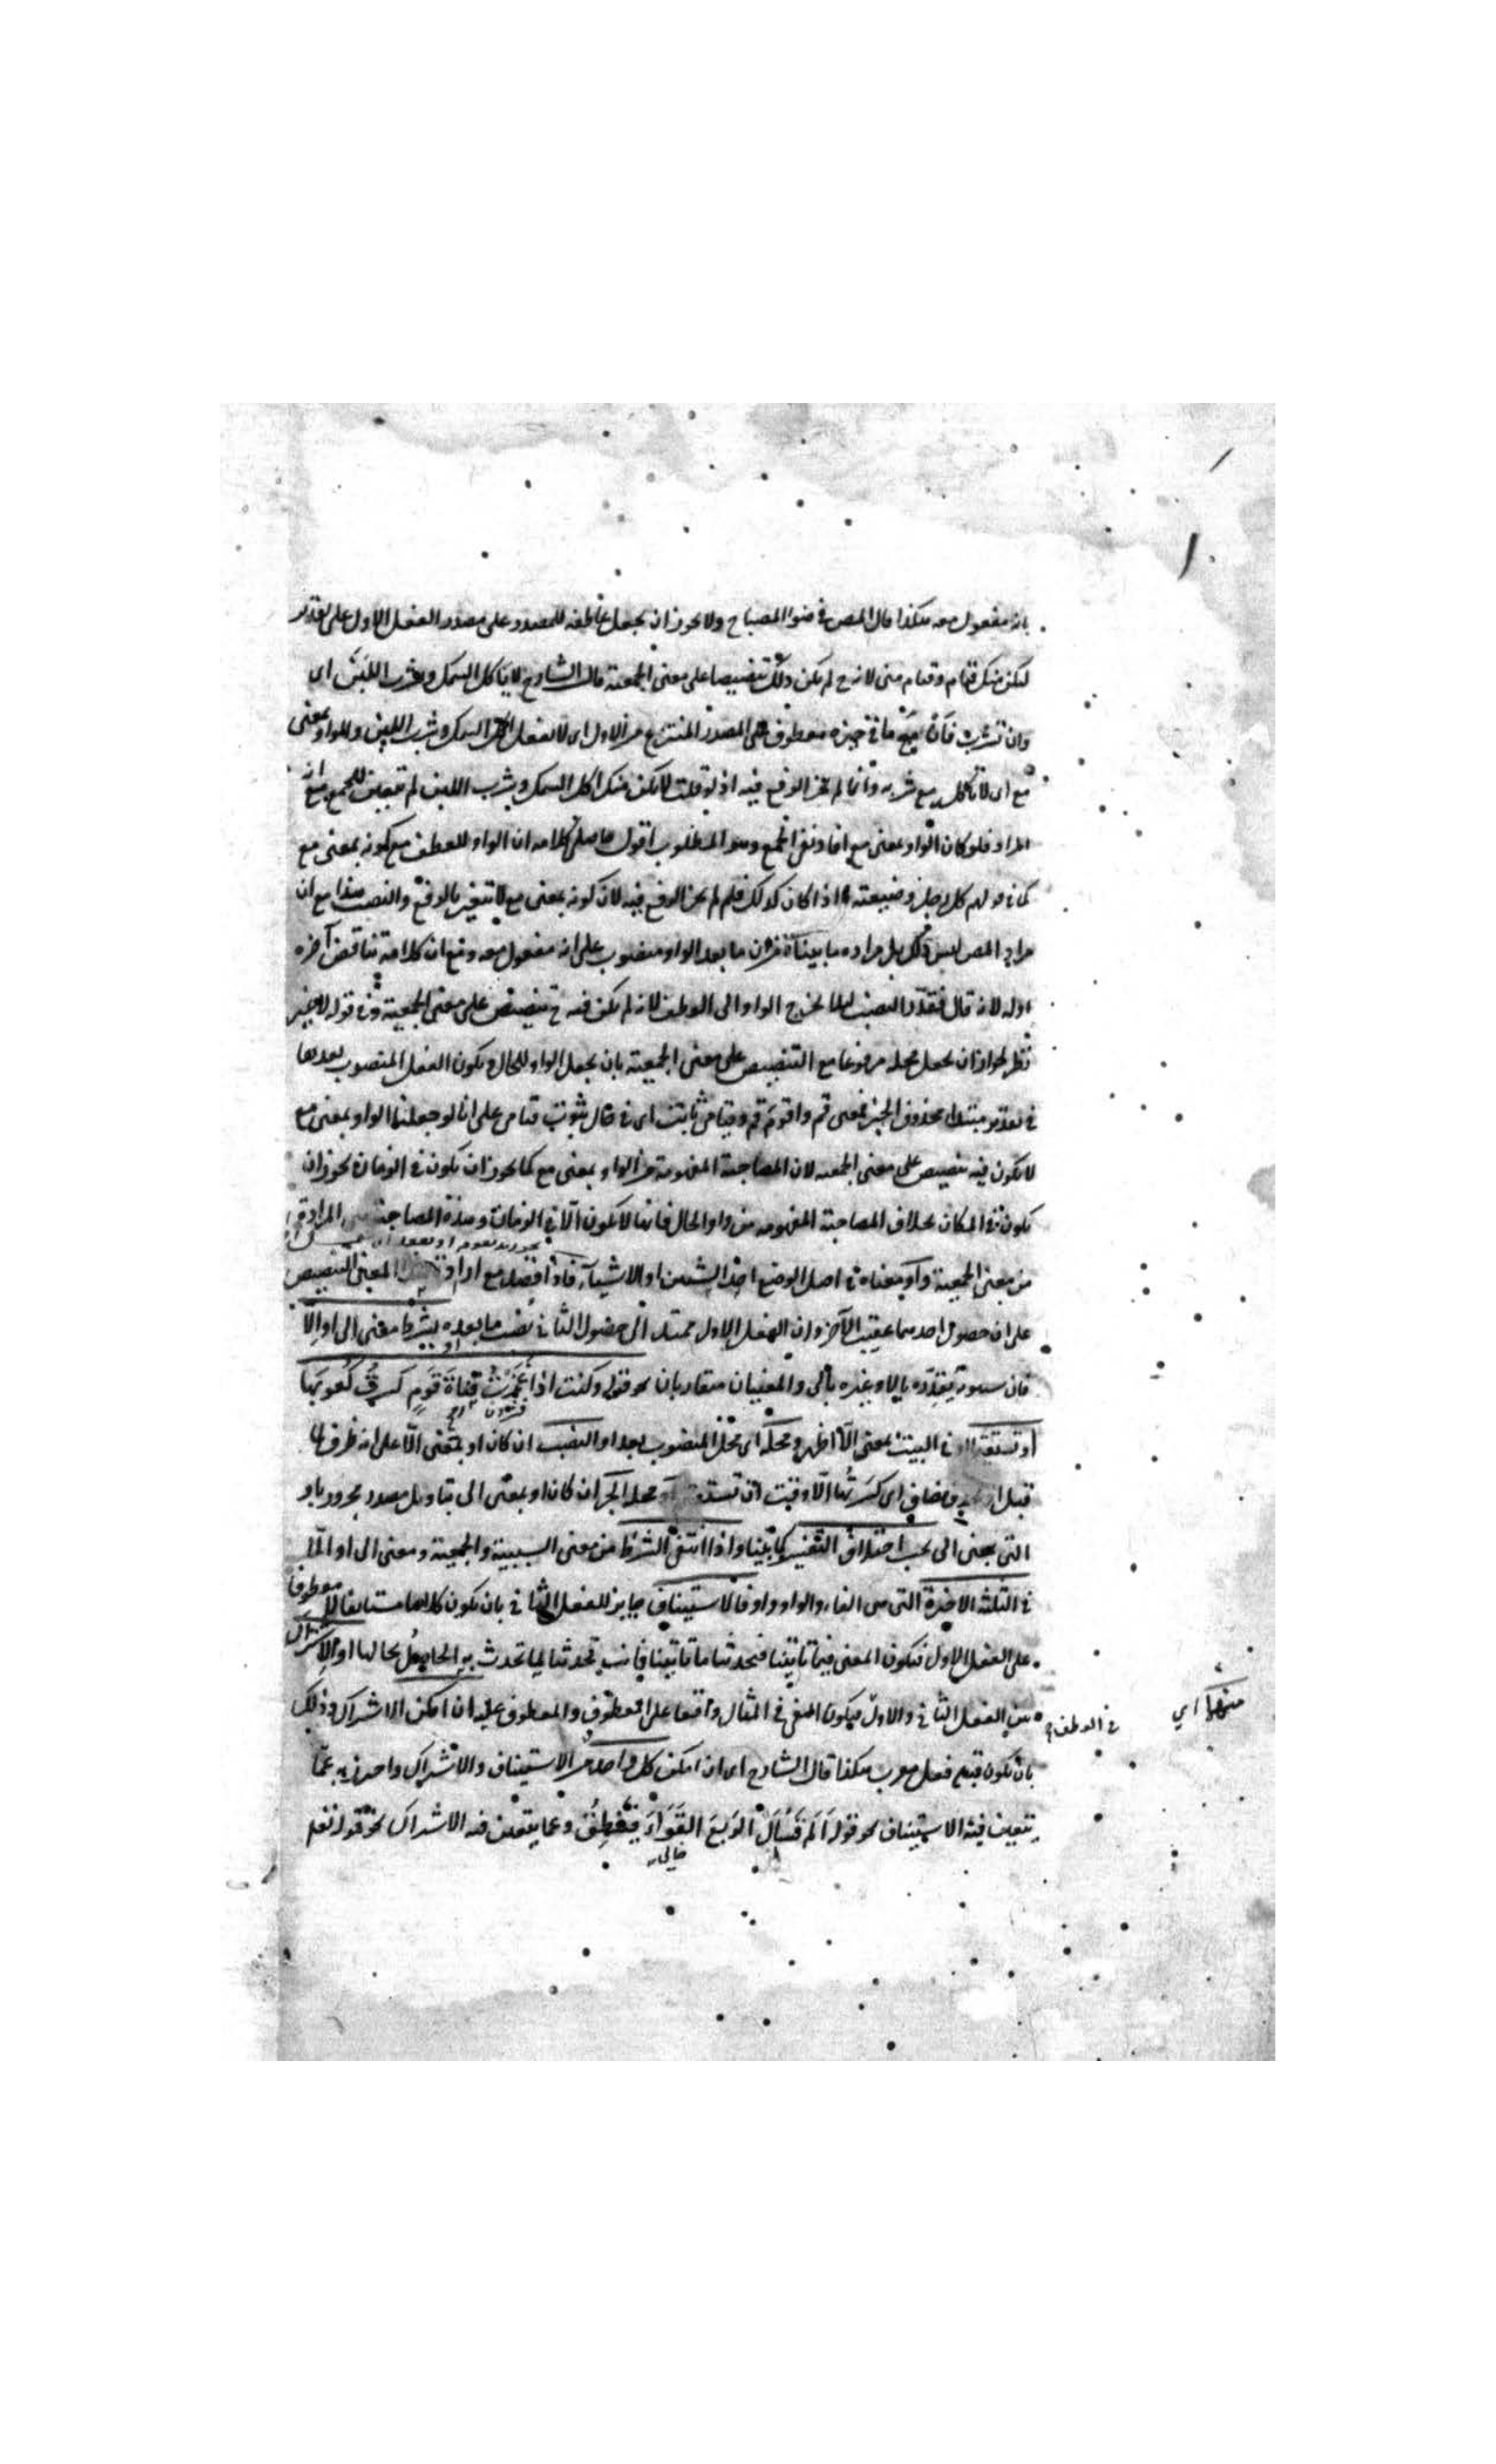 بانه مفعول معه هكذا قال المص في ضوء المصباح ولا يجوز ان يجعل عاطفه للمصدر على مصدر الفعل الاول على تقدير
ليكن منك قيام وقيام منى لانه ح لم يكن ذلك تنصيصا على معنى الجمعية قال الشارح لا تاكل السمك وتشرب اللبن اى
وان تشرب فان مع ما فى حيزه معطوف على المصدر المنتزع من الاول اى لا تفعل اكل السمك وشرب اللبن والواو بمعنى
مع اى لا تاكل مع شربه وانما لم يجز الرفع فيه اذ لو قلت لا يكن منك اكل السمك وشرب اللبن لم يتعين للجمع مع انه
المراد فلو كان الواو بمعنى مع افاد نفى الجمع وهو المطلوب اقول حاصل كلامه ان الواو للعطف مع كونه بمعنى مع
كما فى قولهم كل رجل وضيعته اذا كان كذلك فلم لم يجز الرفع فيه لان كونه بمعنى مع لا يتغير بالرفع والنصب هذا مع ان
مراد المص ليس ذلك بل مراده ما بيناه من ان ما بعد الواو منصوب على انه مفعول معه ومع ان كلامه تناقض آخره
اوله لانه قال فقدر النصب ليلا يخرج الواو الى العطف لانه لم يكن فيه ح تنصيص على معنى الجمعية وفى قوله لا غير
نظر لجواز ان يجعل محله مرفوعا مع التنصيص على معنى الجمعية بان يجعل الواو للحال ويكون الفعل المنصوب بعدها
فى تقدير مبتداء محذوف الخبر فمعنى قم واقوم قم وقيامى ثابت اى فى حال ثبوت قيامى على انا لو جعلنا الواو بمعنى مع
لا يكون فيه تنصيص على معنى الجمعيه لان المصاحبة المفهومة من الواو بمعنى مع كما يجوز ان يكون فى الزمان يجوز ان
يكون فى المكان بخلاف المصاحبة المفهومه من واو الحال فانها لا يكون الا فى الزمان وهذه المصاحبة هى المرادة
من معنى الجمعية واو معناه فى اصل الوضع احد الشيئين او الاشياء فاذا قصد مع افادة المعنى التنصيص
على ان حصول احدهما عقيب الآخر وان الفعل الاول ممتد الى حصول الثانى نصب ما بعده بشرط معنى الى او الا
فان سيبويه يقدره بالا وغيره بالى والمعنيان متقاربان نحو قوله وكنت اذا غمزت قناة قوم كسرت كعوبها
او تستقيما فى البيت بمعنى الا اظهر ومحله اى محل المنصوب بعد او النصب ان كان او بمعنى الا على انه ظرف لما
قبل او مضاف اى كسرتها الا وقت ان تستقيم او محله الجر ان كان او بمعنى الى بتاويل مصدر مجرور باو
التى بمعنى الى بحسب اختلاف التفسير كما بينا واذا انتفى الشرط من معنى السببية والجمعية ومعنى الى او الا
فى الثلثة الاخيرة التى هى الفاء والواو واو فالاستيناف جايز للفعل الثانى بان يكون كلاهما مستانفا لا معطوفا
على الفعل الاول فيكون المعنى فى ما تاتينا فتحدثنا ما تاتينا فانت تحدثنا بما تحدث به الجاهل بحالها او الاشتراك
بين الفعل الثانى والاول فيكون النفى فى المثال واقعا على المعطوف والمعطوف عليه ان امكن الاشتراك وذلك
بان يكون قبله فعل معرب هكذا قال الشارح اى ان امكن كل واحد من الاستيناف والاشتراك واحترز به عما
يتعين فيه الاستيناف نحو قوله الم تسأل الربع القواء فينطق وعما يتعين فيه الاشتراك نحو قوله تعلم
خالى
فى العطف